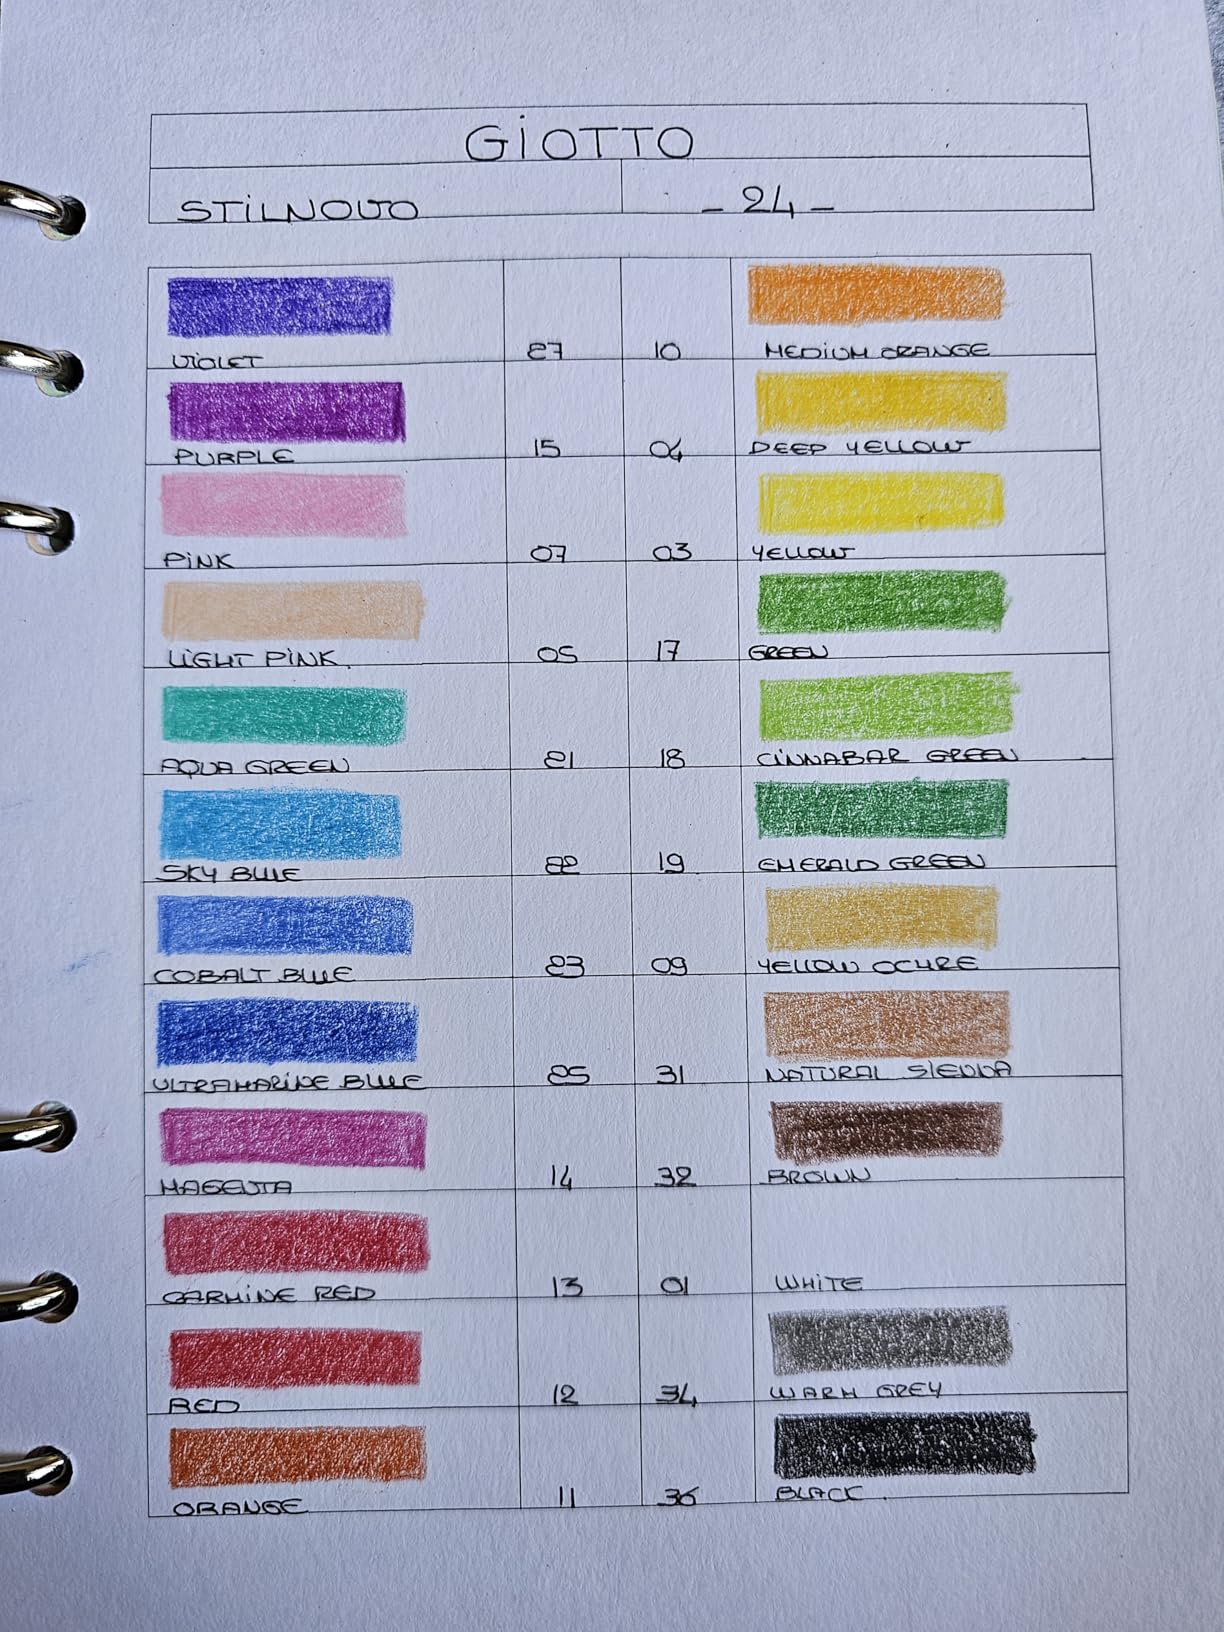 GIOTTO
STILNOVO - 24 -
VIOLET 27 10 MEDIUM ORANGE
PURPLE 15 04 DEEP YELLOW
PINK 07 03 YELLOW
LIGHT PINK. 05 17 GREEN
AQUA GREEN 21 18 CINNABAR GREEN
SKY BLUE 22 19 EMERALD GREEN
COBALT BLUE 23 09 YELLOW OCHRE
ULTRAMARINE BLUE 25 31 NATURAL SIENNA
MAGENTA 14 32 BROWN
CARMINE RED 13 01 WHITE
RED 12 34 WARM GREY
ORANGE 11 36 BLACK.